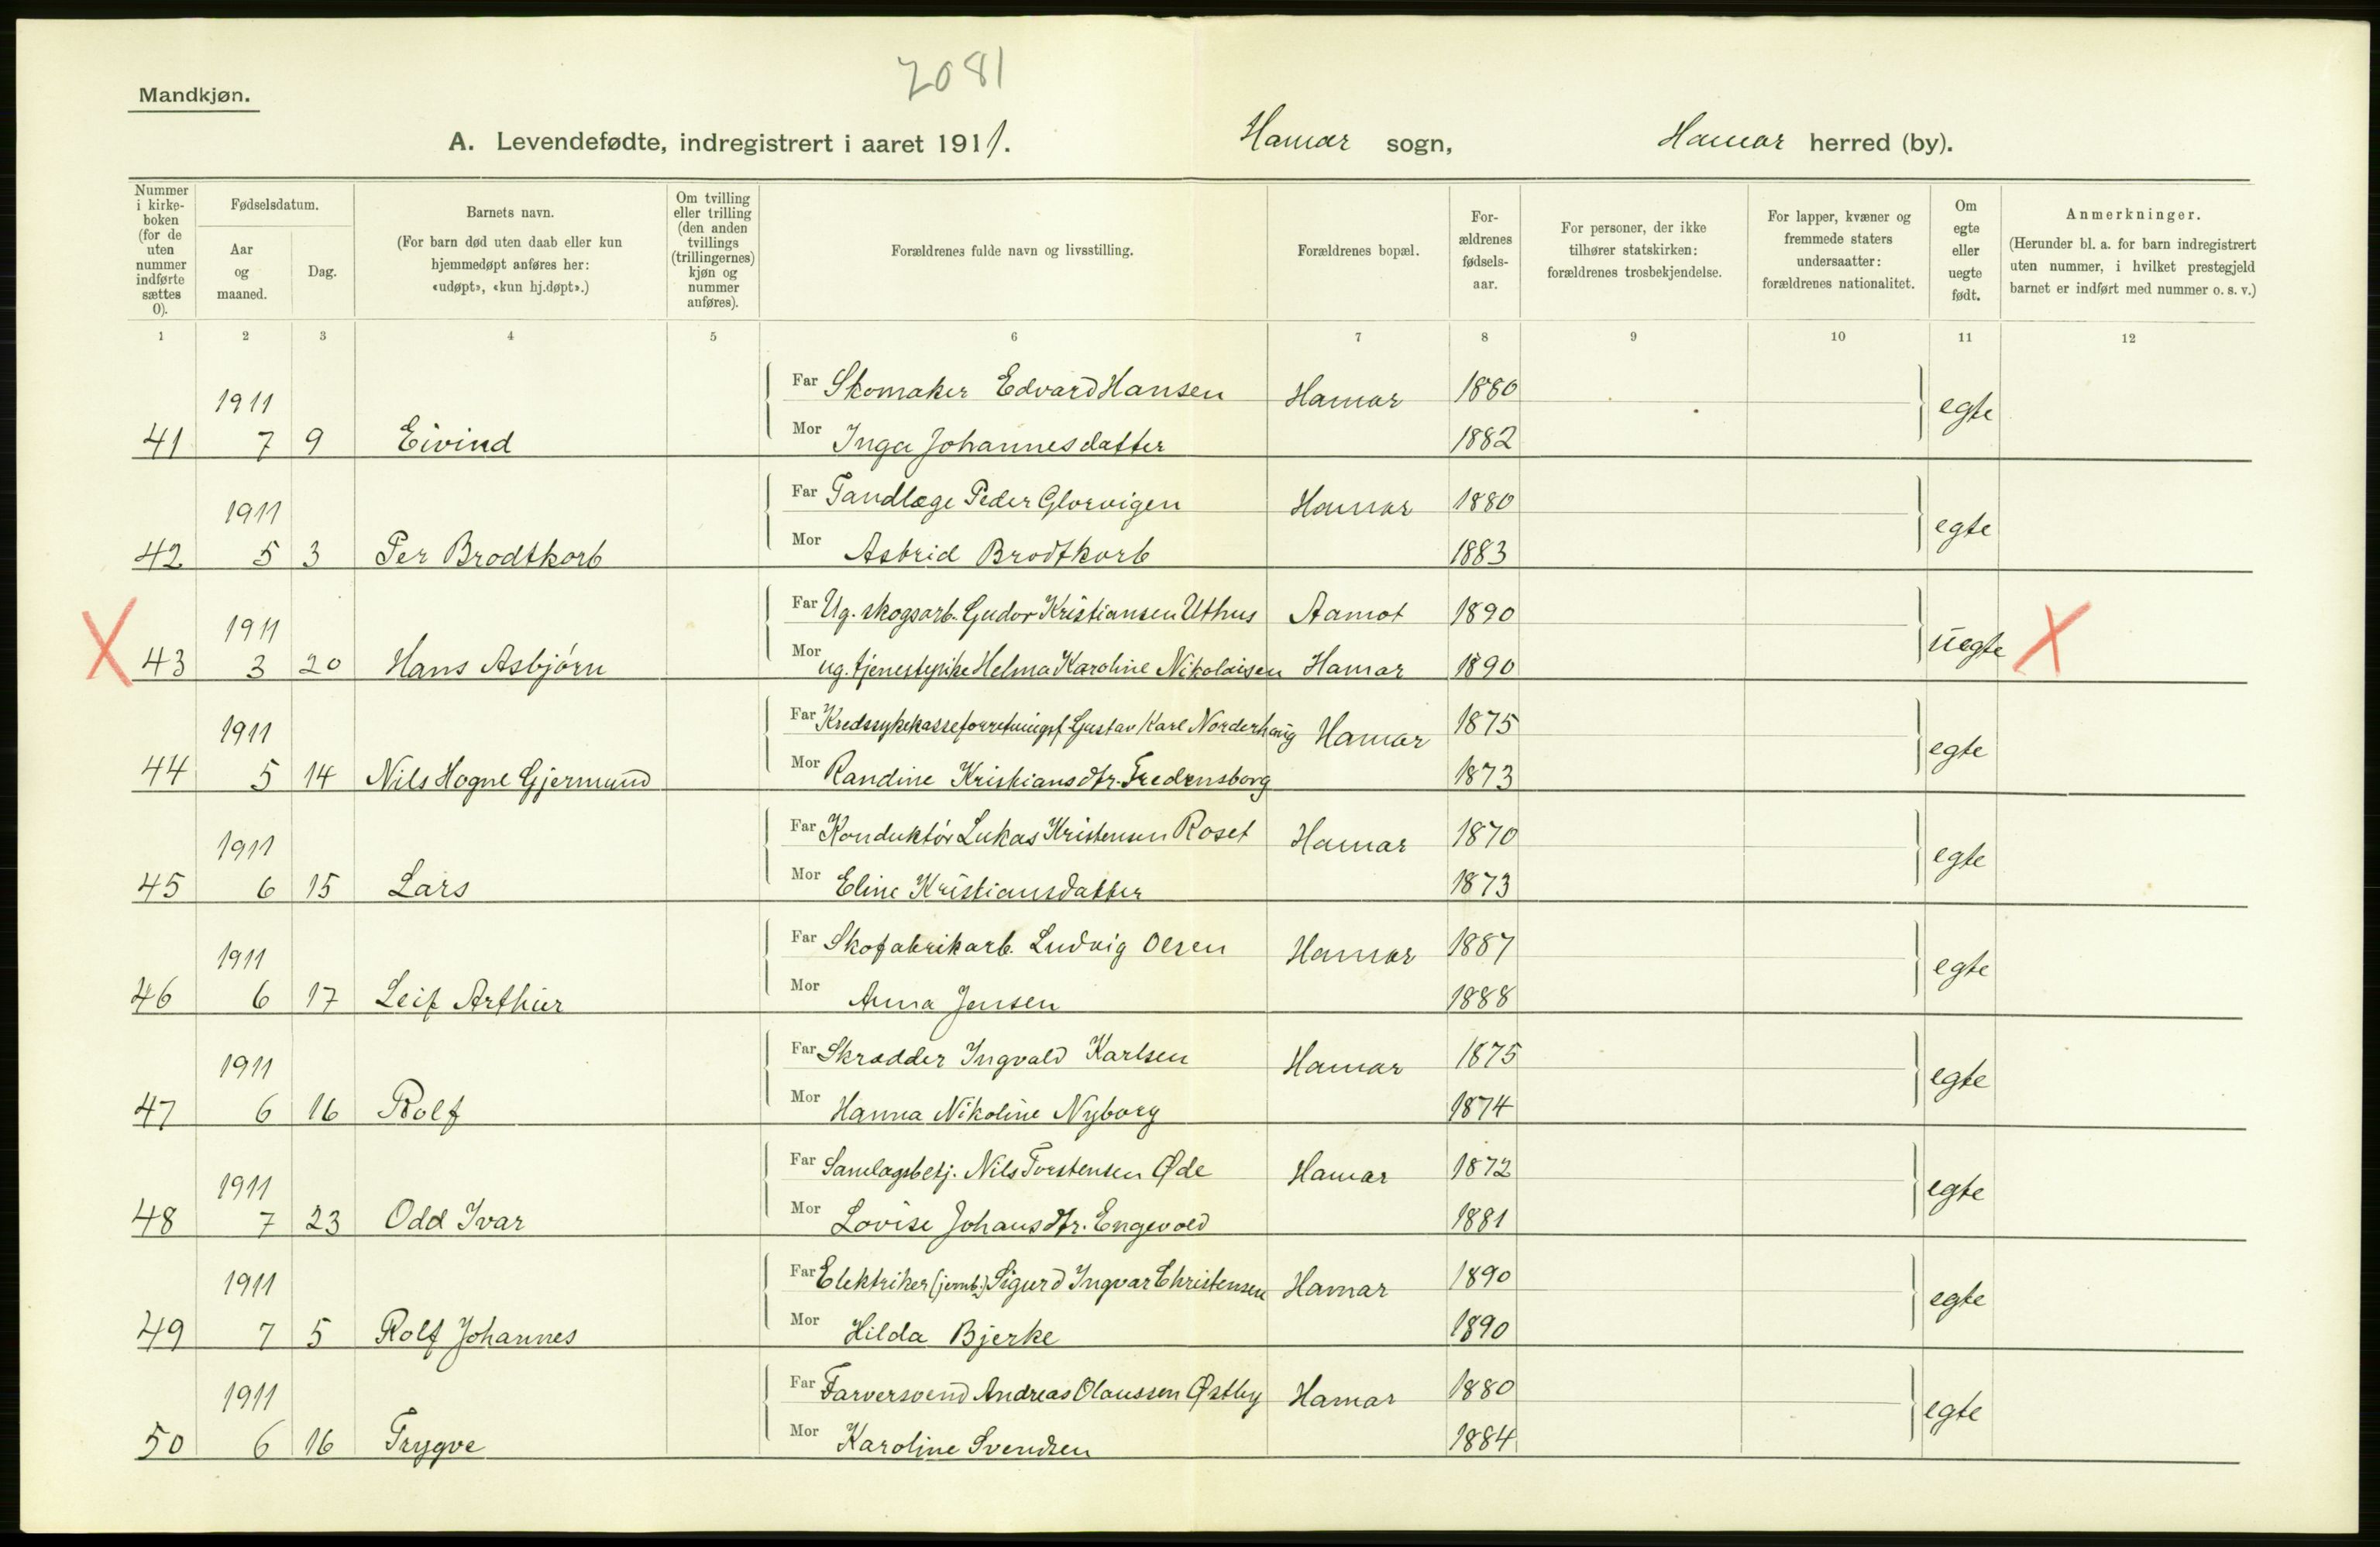 2081
Mandkjøn.
A. Levendefødte, indregistrert i aaret 1911. Hamar sogn, Hamar herred (by).
Nummer i kirke-boken (for de uten nummer indførte sættes 0).
Fødselsdatum.
Aar og maaned.
Dag.
Barnets navn.
(For barn død uten daab eller kun hjemmedøpt anføres her: «udøpt», «kun hj.døpt».)
Om tvilling eller trilling (den anden tvillings (trillingernes) kjøn og nummer anføres).
Forældrenes fulde navn og livsstilling.
Forældrenes bopæl.
For-ældrenes fødsels-aar.
For personer, der ikke tilhører statskirken: forældrenes trosbekjendelse.
For lapper, kvæner og fremmede staters undersaatter: forældrenes nationalitet.
Om egte eller uegte født.
Anmerkninger.
(Herunder bl. a. for barn indregistrert uten nummer, i hvilket prestegjeld barnet er indført med nummer o. s. v.)
1 2 3 4 5 6 7 8 9 10 11 12
1911 Far Skomaker Edvard Hansen Hamar 1880 egte
41 7 9 Eivind Mor Inga Johannesdatter 1882
1911 Far Tandlæge Peder Glorvigen Hamar 1880 egte
42 5 3 Per Brodtkorb Mor Astrid Brodtkorb 1883
1911 Far Ug. skogsarb. Gudor Kristiansen Uthus Aamot 1890 uegte X
X 43 3 20 Hans Asbjørn Mor ug. tjenestepike Helma Karoline Nikolaisen Hamar 1890
1911 Far Kredssykekasseforretningsf. Gustav Karl Norderhaug Hamar 1875 egte
44 5 14 Nils Hogne Gjermund Mor Randine Kristiansdtr. Fredensborg 1873
1911 Far Konduktør Lukas Kristensen Roset Hamar 1870 egte
45 6 15 Lars Mor Eline Kristiansdatter 1873
1911 Far Skofabrikarb. Ludvig Olsen Hamar 1887 egte
46 6 17 Leif Arthur Mor Anna Jensen 1888
1911 Far Skrædder Ingvald Karlsen Hamar 1875 egte
47 6 16 Rolf Mor Hanna Nikoline Nyborg 1874
1911 Far Samlagsbetj. Nils Torstensen Øde Hamar 1872 egte
48 7 23 Odd Ivar Mor Lovise Johansdtr. Engevold 1881
1911 Far Elektriker (jernb.) Sigurd Ingvar Christensen Hamar 1890 egte
49 7 5 Rolf Johannes Mor Hilda Bjerke 1890
1911 Far Farversvend Andreas Olaussen Østby Hamar 1880 egte
50 6 16 Trygve Mor Karoline Svendsen 1884